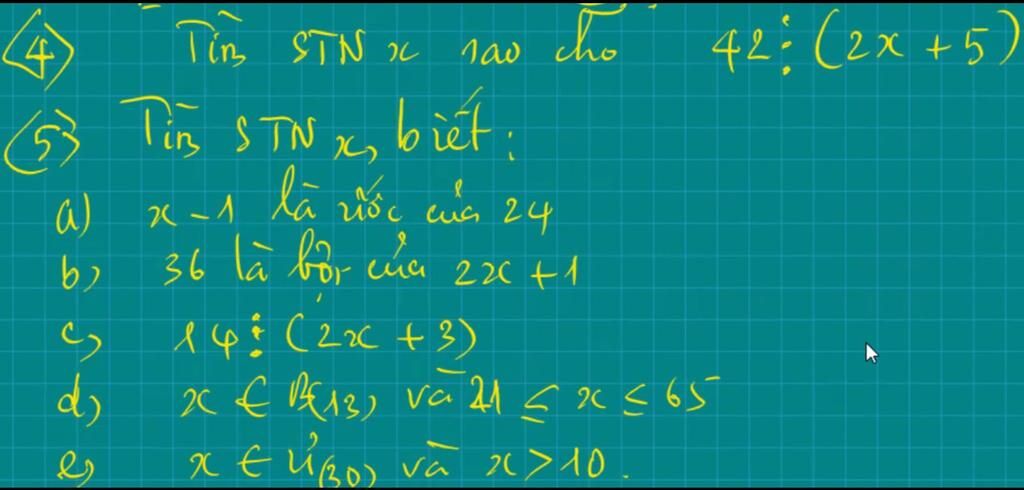 (4) Tìm STN x sao cho 42 ⋮ (2x + 5)
(5) Tìm STN x, biết :
a) x - 1 là ước của 24
b) 36 là bội của 2x + 1
c) 14 ⋮ (2x + 3)
d) x ∈ B(13) và 21 ≤ x ≤ 65
e) x ∈ Ư(30) và x > 10.